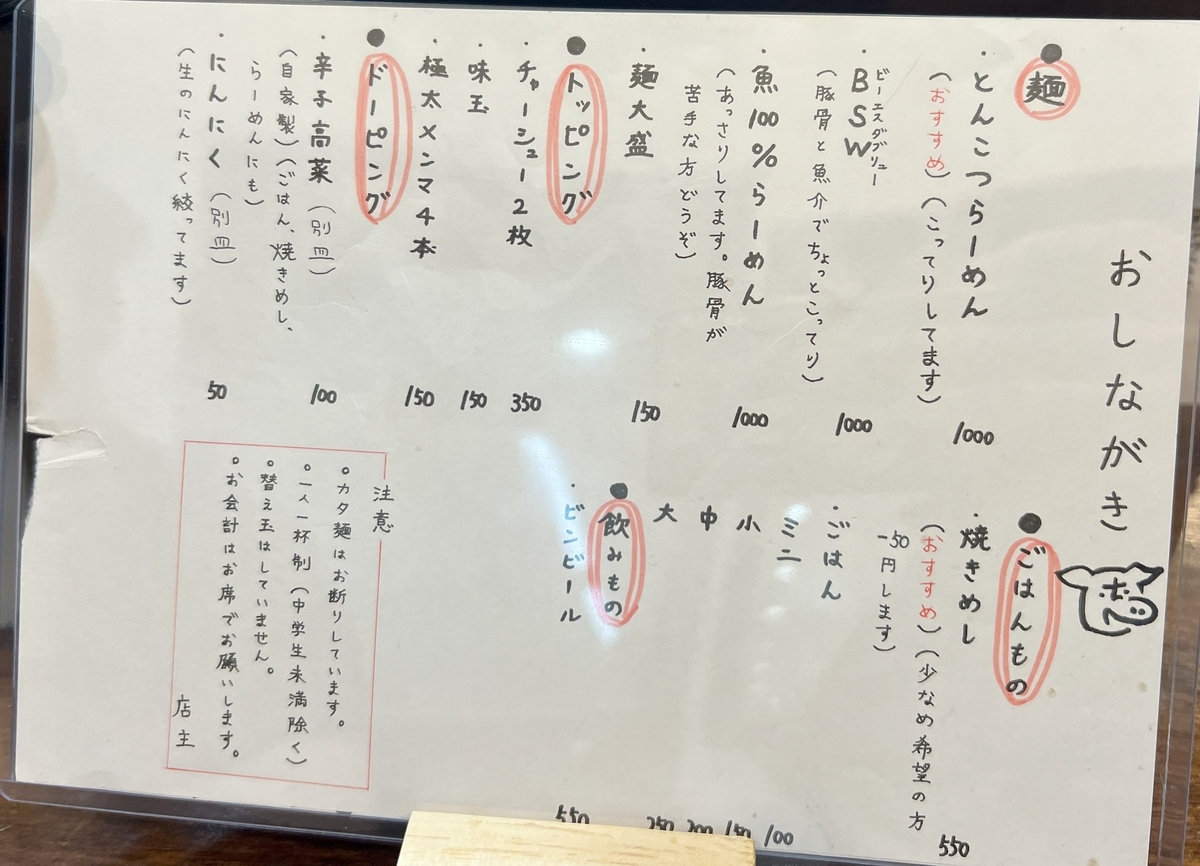 おしながき
●麺
・とんこつらーめん 1000
(おすすめ)(こってりしてます)
・BSW 1000
ビーエスダブリュー
(豚骨と魚介でちょっとこってり)
・魚100%らーめん 1000
(あっさりしてます。豚骨が
苦手な方どうぞ)
・麺大盛 150
●トッピング
・チャーシュー2枚 350
・味玉 150
・極太メンマ4本 150
●ドーピング
・辛子高菜(別皿) 100
(自家製)(ごはん、焼きめし、
らーめんにも)
・にんにく(別皿) 50
(生のにんにく絞ってます)
●ごはんもの
・焼きめし 550
(おすすめ)(少なめ希望の方
-50円します)
・ごはん
ミニ 100
小 150
中 200
大 250
●飲みもの
・ビンビール 550
注意
○カタ麺はお断りしています。
○一人一杯制(中学生未満除く)
○替え玉はしていません。
○お会計はお席でお願いします。
店主